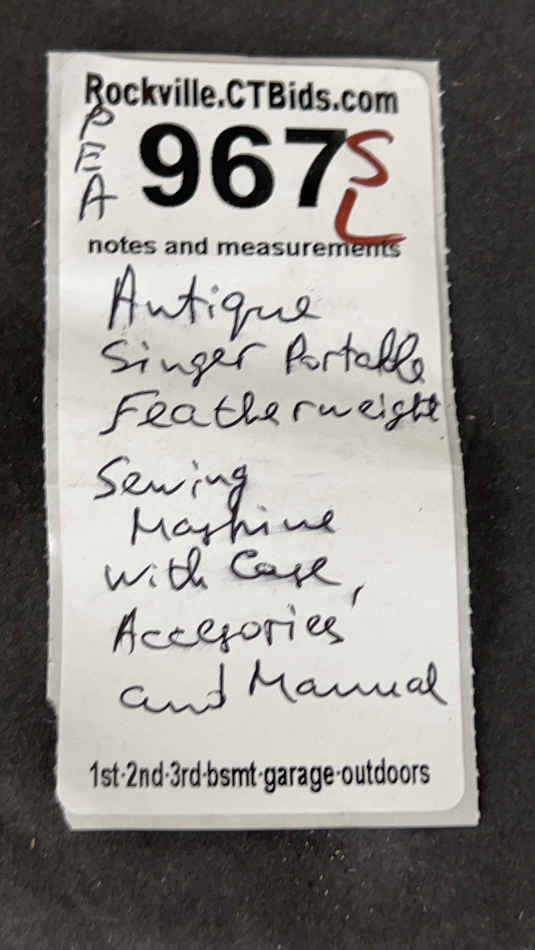 Rockville.CTBids.com
P
E
A
967
S
L
notes and measurements
Antique
Singer Portable
Featherweight
Sewing
Mashine
with Case,
Accesories
and Manual
1st·2nd·3rd·bsmt·garage·outdoors